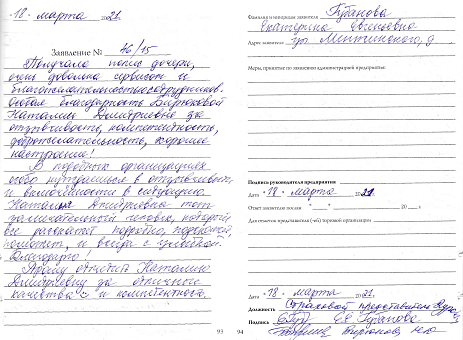 "18" марта 21.
Заявление № 46/15
Получала полис дочери,
очень довольна сервисом и
благожелательностью сотрудников.
Особая благодарность Бирюковой
Наталии Дмитриевне за
отзывчивость, компетентность,
доброжелательность, хорошее
настроение!
В подобных организациях
особо нуждаешься в отзывчивости
и включённости в ситуацию.
Наталия Дмитриевна тот
замечательный человек, который
все расскажет подробно, подскажет,
поможет, и всегда с улыбкой.
Благодарю!
Прошу отметить Наталию
Дмитриевну за отличные
качества и компетентность.
93
Фамилия и инициалы заявителя Губанова
Екатерина Евгеньевна
Адрес заявителя
Меры, принятые по заявлению администрацией предприятия:
Подпись руководителя предприятия
Дата "18" марта 2021.
Ответ заявителю послан " " 20 г.
Для отметок представителя (-ей) торговой организации
Дата "18" марта 2021.
Должность Страховой представитель
Подпись Е.Е. Губанова
Бирюкова Н.Д.
94